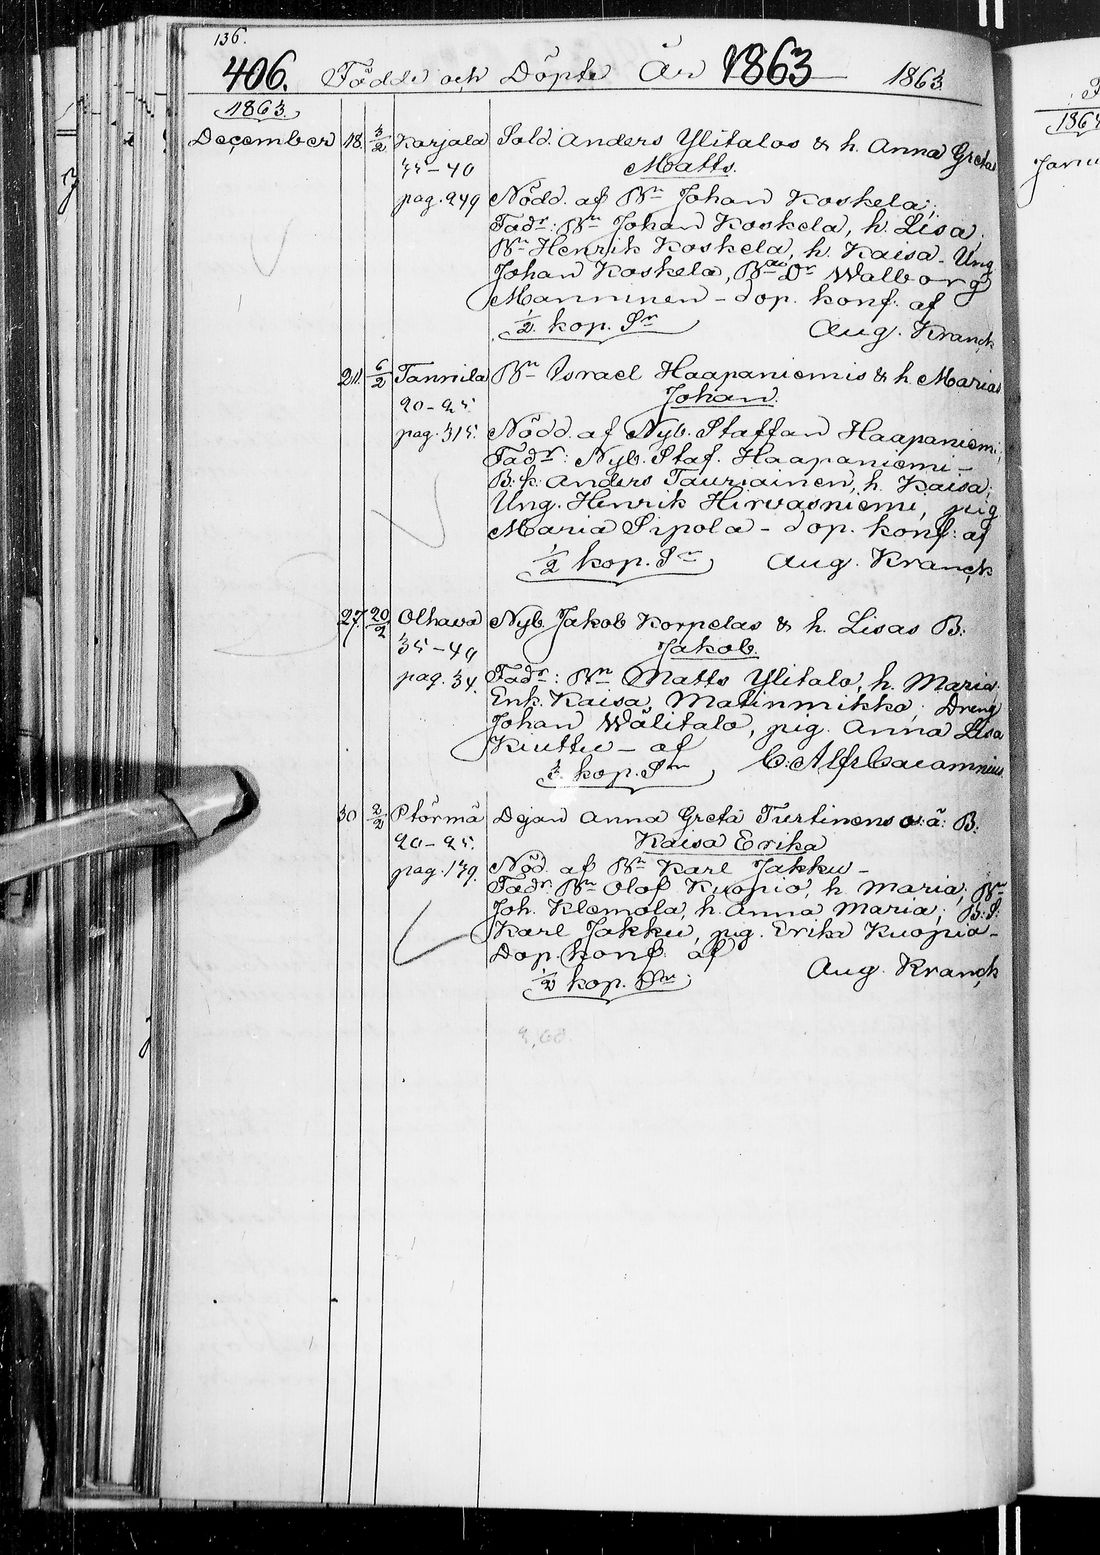 136.
406. Födde och Döpte År 1863 1863
1863.
December 18. 3/2 Karjala Sold. Anders Ylitalos & h. Anna Gretas
35-40 Matts.
pag. 249 Nödd. af Bn Johan Koskela;
Faddr: Bn Johan Koskela, h. Lisa,
Bn Henrik Koskela, h. Kaisa - Ung
Johan Koskela, Bde Dr Walborg
Manninen - dop. konf. af
1/2 kop. Sr Aug. Kranck
21. 6/2 Tannila Bn Israel Haapaniemis & h. Marias
20-25. Johan.
pag. 315. Nödd. af Nyb. Staffan Haapaniemi;
Faddr: Nyb. Staf. Haapaniemi -
B. k. Anders Tauriainen, h. Kaisa;
Ung. Henrik Hirvasniemi, pig
Maria Sipola - dop. konf. af
1/2 kop. Sr Aug. Kranck
27. 20/2 Olhava Nyb Jakob Korpelas & h. Lisas B:
35-40 Jakob.
pag. 34. Fadr: Bn Matts Ylitalo, h. Maria
Enk. Kaisa Matinmikko; Dreng
Johan Wälitalo, pig. Anna Lisa
Kuttu - af
kop. Sr C. Alfr Caiamnius
30 2/2 Ptörmä Dejan Anna Greta Turtinens o: ä: B:
20-25. Kaisa Erika
pag. 139. Nöd. af Bn Karl Jakku -
Fadr. Bn Olof Kuopio, h Maria; Bn
Joh. Klemola, h Anna Maria; B: S:
Karl Jakku, pig. Erika Kuopio -
Dop. konf. af
1/2 kop. Sr Aug. Kranck
1864